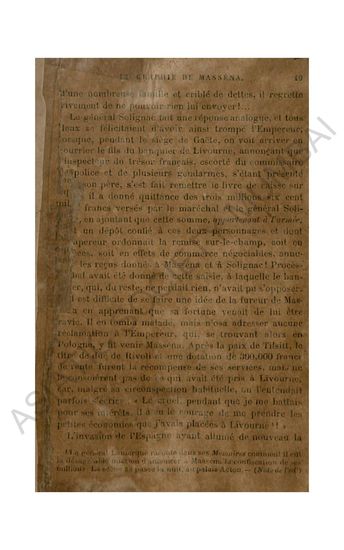 LE GUÊPIER DE MASSÉNA. 19
d'une nombreuse famille et criblé de dettes, il regrette
vivement de ne pouvoir rien lui envoyer!...
Le général Solignac fait une réponse analogue, et tous
deux se félicitaient d'avoir ainsi trompé l'Empereur,
lorsque, pendant le siège de Gaëte, on voit arriver en
courrier le fils du banquier de Livourne, annonçant que
l'inspecteur du trésor français, escorté du commissaire
de police et de plusieurs gendarmes, s'étant présenté
son père, s'est fait remettre le livre de caisse sur
il a donné quittance des trois millions six cent
mille francs versés par le maréchal et le général Soli-
gnac, en ajoutant que cette somme, appartenant à l'armée,
un dépôt confié à ces deux personnages et dont
l'Empereur ordonnait la remise sur-le-champ, soit en
espèces, soit en effets de commerce négociables, annu-
lant les reçus donnés à Masséna et à Solignac! Procès-
verbal avait été donné de cette saisie, à laquelle le ban-
quier, qui, du reste, ne perdait rien, n'avait pu s'opposer.
Il est difficile de se faire une idée de la fureur de Mas-
séna en apprenant que sa fortune venait de lui être
ravie. Il en tomba malade, mais n'osa adresser aucune
réclamation à l'Empereur, qui, se trouvant alors en
Pologne, y fit venir Masséna. Après la paix de Tilsitt, le
titre de duc de Rivoli et une dotation de 300,000 francs
de rente furent la récompense de ses services, mais ne
le consolèrent pas de ce qui avait été pris à Livourne,
car, malgré sa circonspection habituelle, on l'entendit
parfois s'écrier: « Le cruel, pendant que je me battais
pour ses intérêts, il a eu le courage de me prendre les
petites économies que j'avais placées à Livourne¹! »
L'invasion de l'Espagne ayant allumé de nouveau la
¹ Le général Lamarque raconte dans ses Mémoires comment il eut
la désagréable mission d'annoncer à Masséna la confiscation de ses
millions. La scène se passe la nuit, au palais Acton. — (Note de l'éd.)